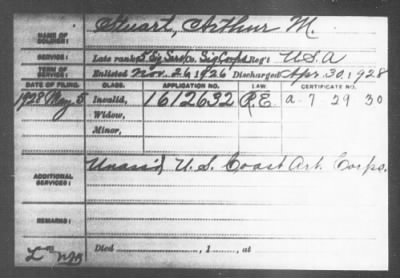 Stuart, Arthur M.
NAME OF SOLDIER:
SERVICE: Late rank, Sig Corps Reg't U.S.A
TERM OF SERVICE: Enlisted Nov. 26, 1926 Discharged Apr. 30, 1928
DATE OF FILING. CLASS. APPLICATION NO. LAW. CERTIFICATE NO.
1928 May 5 Invalid, 1612632 R.E. a-7 29 30
Widow,
Minor,
ADDITIONAL SERVICES: Unass'd U. S. Coast Art. Corps.
REMARKS:
Died , 1 , at